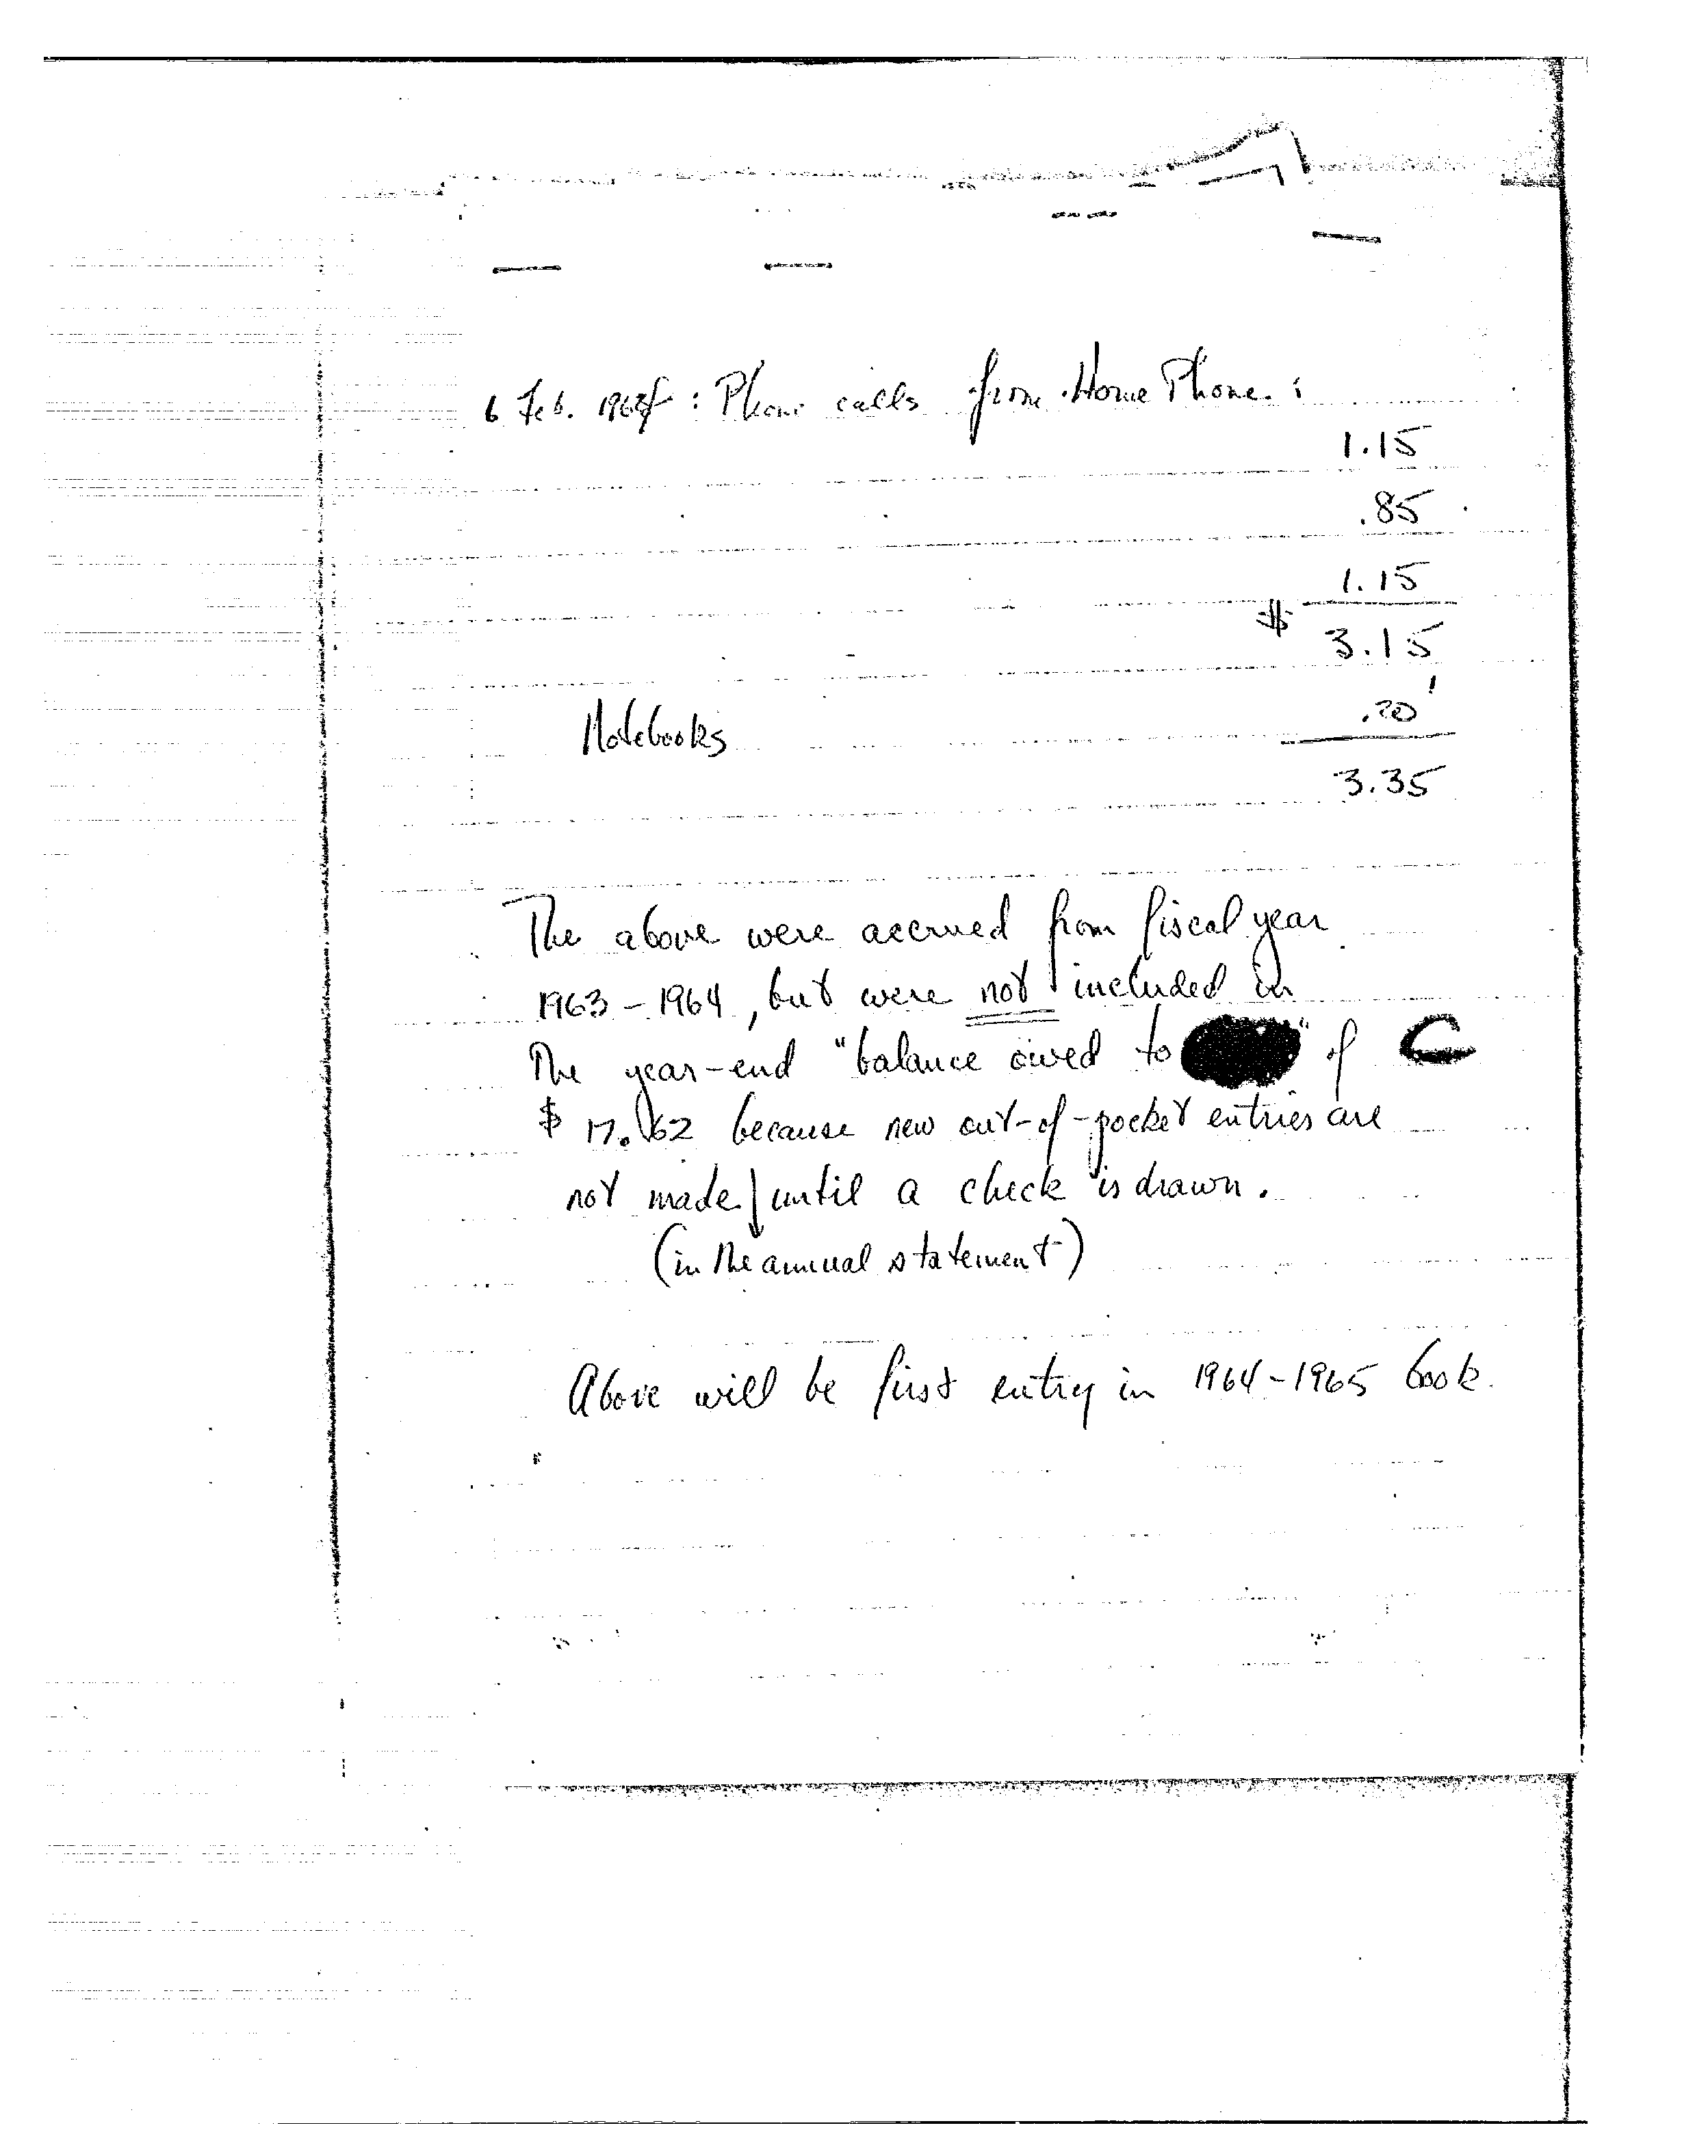 6 Feb. 1964 : Phone calls from Home Phone :
1.15
.85
1.15
$ 3.15
Notebooks .20
3.35
The above were accrued from fiscal year
1963 - 1964, but were not included in
The year-end "balance owed to " of
$ 17.62 because new out-of-pocket entries are
not made until a check is drawn.
(in the annual statement)
Above will be first entry in 1964-1965 book.